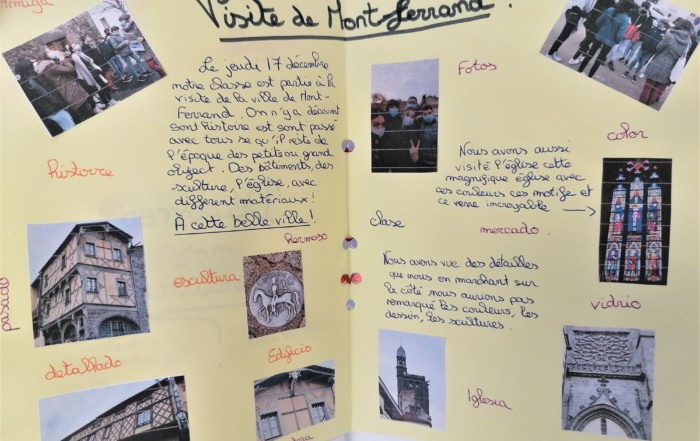 Visite de Mont-Ferrand.
Amiga
Le jeudi 17 décembre
notre classe est partie à la
visite de la ville de Mont-
Ferrand. On n'y a découvert
son histoire est sont passé
avec tous se qu'il reste de
l'époque des petits ou grand
object. Des bâtiments, des
sculture, l'église, avec
different matériaux!
À cette belle ville!
histoire
pasado
escultura
hermoso
detallado
Edificio
Fotos
color
Nous avons aussi
visité l'église cette
magnifique église avec
ces couleurs ces motifs et
ce verre incroyable →
clase
mercado.
Nous avons vue des détailles
que nous en marchant sur
le côté nous aurions pas
remarqué les couleurs, les
dessin, les scultures.
vidrio
Iglesia